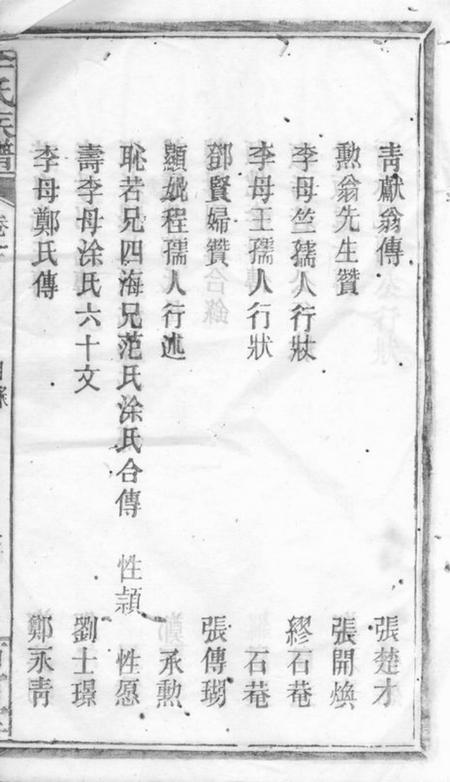 青獻翁傳 張楚才
勲翁先生贊 張開煥
李母竺孺人行狀 繆石菴
李母王孺人行狀 石菴
鄧賢婦贊 張傳瑚
顯妣程孺人行述 承勲
恥若兄四海兄范氏涂氏合傳 性頴 性愿
壽李母涂氏六十文 劉士璟
李母鄭氏傳 鄭永青
氏族譜